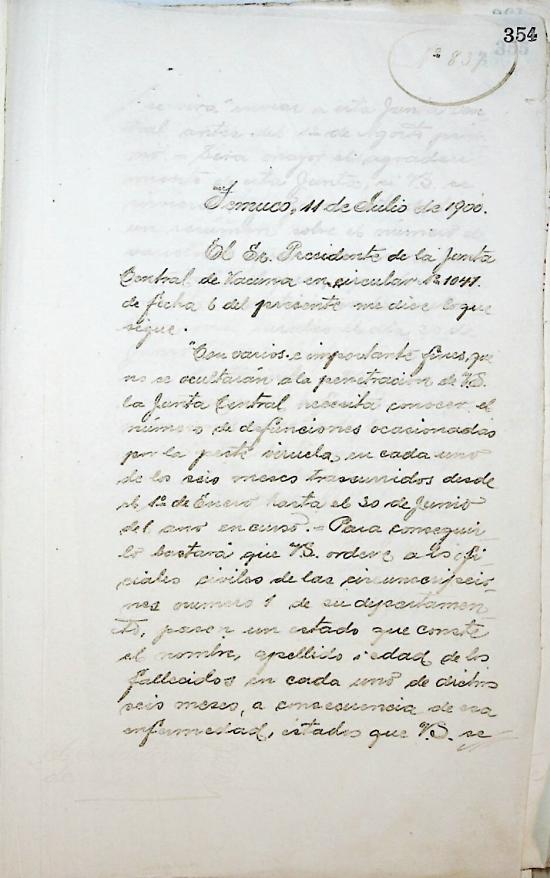 354
Nº 837
Temuco, 11 de Julio de 1900.
El Sr. Precidente de la Junta
Central de Vacuna en circular Nº 1041.
de fecha 6 del presente me dice lo que
sigue.
"Con varios e importante fines, que
no se ocultarán a la penetracion de V.S.
la Junta Central necesita conocer el
número de defunciones ocasionadas
por la peste viruela, en cada uno
de los seis meses trascurridos desde
el 1º de Enero hasta el 30 de Junio
del ano en curso. - Para conseguir
lo bastará que V.S. ordene a los ofi
ciales civiles de las circunscripcio
nes numero 1 de su departamen
to, pasen un estado que conste
el nombre, apellido i edad de los
fallecidos en cada uno de dichos
seis meses, a consecuencia de esa
enfermedad, estados que V.S. se